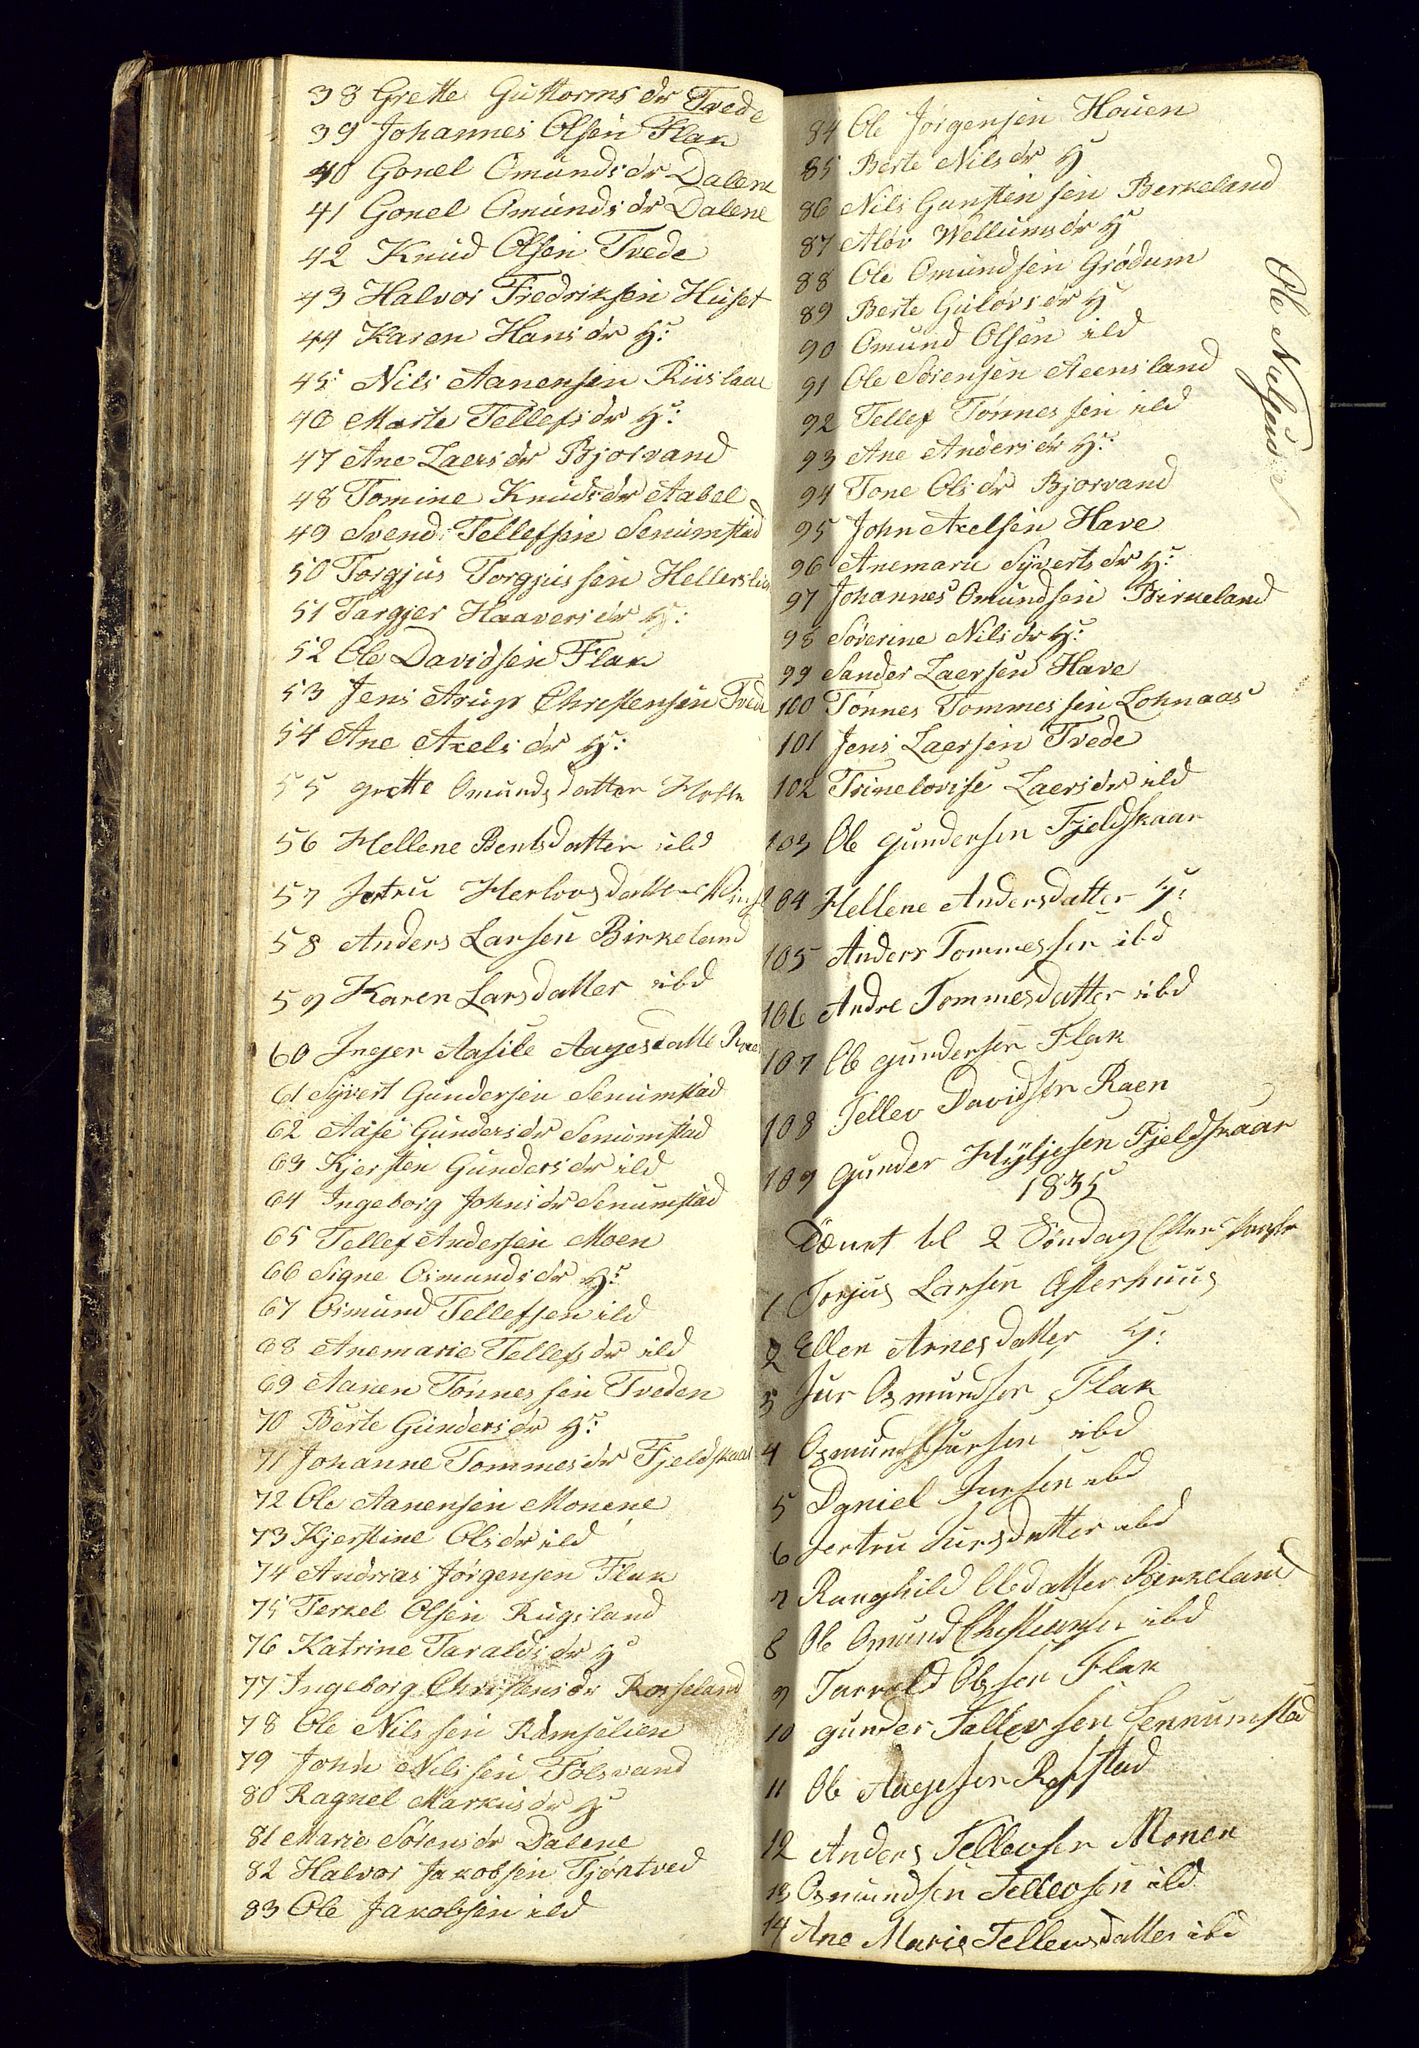 38 Grette Guttorms dr Tvede
39 Johannes Olsen Flak
40 Gonel Omunds dr Dalene
41 Gonel Omunds dr Dalene
42 Knud Olsen Tvede
43 Halvor Fredriksen Huset
44 Karen Hans dr H:
45 Nils Aanensen
46 Marte Tellefs dr H:
47 Ane Laers dr Bjorvand
48 Tomine Knuds dr Aabel
49 Svend Tellefsen Senumstad
50 Torgjus Torgjussen
51 Targjer Haavers dr H:
52 Ole Davidsen Flak
53 Jens Arup Chrestensen Tvede
54 Ane Axels dr H:
55 Grette Omundsdatter
56 Hellene Bentsdatter ibd
57 Jertru
58 Anders Larsen Birkeland
59 Karen Larsdatter ibd
60 Inger Aasile Aagesdatte
61 Syvert Gundersen Senumstad
62 Aase Gunders dr Senumstad
63 Kjersten Gunders dr ild
64 Ingeborg Johns dr Senumstad
65 Tellef Andersen Moen
66 Signe Osmunds dr H:
67 Osmund Tellefsen ild
68 Anemarie Tellefs dr ild
69 Aanen Tønnessen Tveden
70 Berte Gunders dr H:
71 Johanne Tommes dr Fjeldskaar
72 Ole Aanensen Monene
73 Kjerstine Ols dr ild
74 Andrias Jørgensen Flak
75 Terkel Olsen Rugsland
76 Katrine Taralds dr H
77 Ingeborg Christens dr Rosseland
78 Ole Nilssen Ramselien
79 John Nilssen Folsvand
80 Ragnel Markus dr H
81 Marie Sørens dr Dalene
82 Halvor Jakobsen Tjøntved
83 Ole Jakobsen ild
84 Ole Jørgensen Houen
85 Berte Nils dr H
86 Nils Gunstensen Berkeland
87 Aløv Wellums dr H
88 Ole Omundsen Grødum
89 Berte Guløvs dr H
90 Omund Olsen ild
91 Ole Sørensen Steensland
92 Tellef Tønnessen ild
93 Ane Anders dr H:
94 Tone Ols dr Bjorvand
95 John Axelsen Have
96 Anemarie Syverts dr H:
97 Johannes Omundsen Birkeland
98 Søverine Nils dr H:
99 Sander Laersen Have
100 Tønnes Tommessen Lohnaas
101 Jens Laersen Tvede
102 Trinelovise Laers dr ild
103 Ole Gundersen Fjeldskaar
104 Hellene Andersdatter H:
105 Anders Tommessen ibd
106 Andre Tommesdatter ibd
107 Ole Gundersen Flak
108 Tellev Davidsen Raen
109 Gunder Fjeldskaar
1835
til 2 Søndag Efter
1 Torjus Larsen Osterhuus
2 Ellen Arnesdatter H:
3 Jur Osmundsen Flak
4 Osmund Jursen ibd
5 Daniel Jursen ibd
6 Jertru Jursdatter ibd
7 Ranghild Olsdatter Birkeland
8 Ole Omund Chrestensen ibd
9 Tarrald Olssen Flak
10 Gunder Tellevsen Sennumstad
11 Ole Aagesen
12 Anders Tellevsen Monen
13 Osmundsen Tellevsen ild
14 Ane Marie Tellewsdatter ibd
Ole